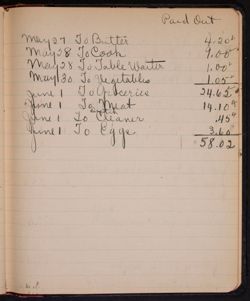 Paid Out
May 27 To Butter 4.20
May 28 To Cook 9.00
May 28 To Table Waiter 1.00
May 30 To Vegetables 1.05
June 1 To Groceries 24.62
June 1 To Meat 14.10
June 1 To Cleaner .45
June 1 To Eggs 3.60
58.02